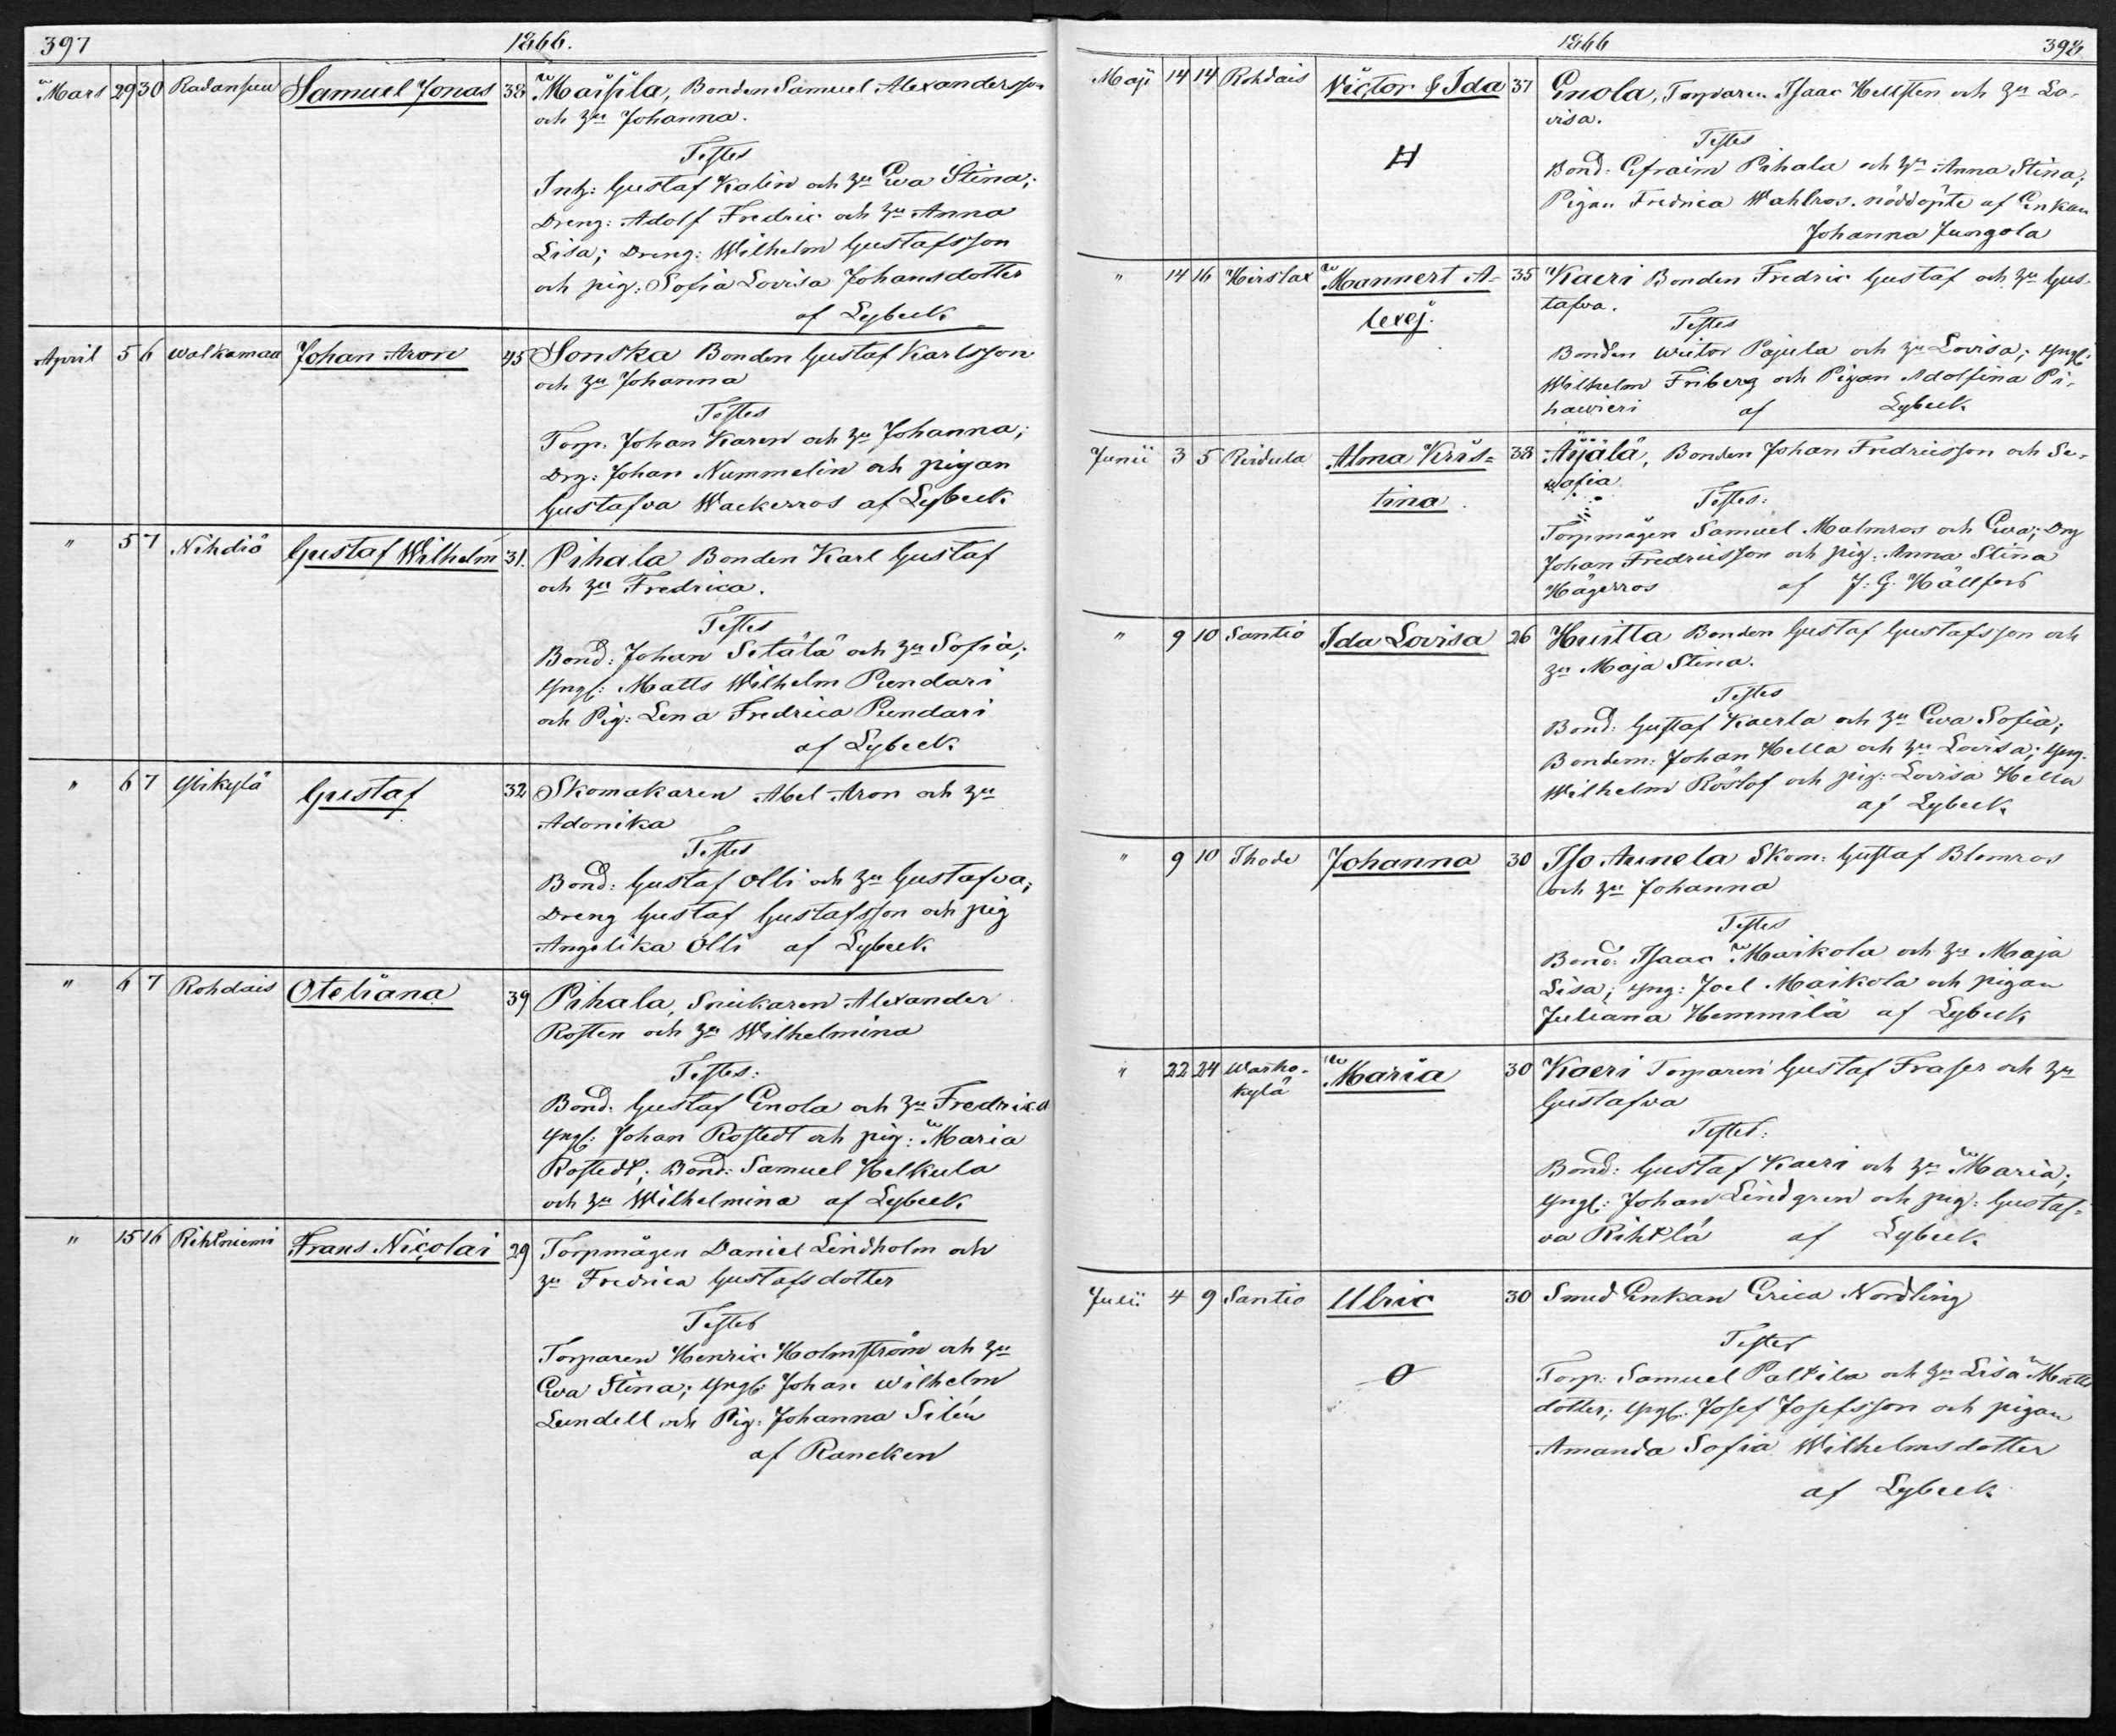 397 1866.
Mars 29 30 Radansuu Samuel Jonas 38 Maisila, Bonden Samuel Alexandersson
och hu Johanna.
Testes
Inh: Gustaf Kalin och hu Ewa Stina;
Dreng: Adolf Fredric och hu Anna
Lisa; Dreng: Wilhelm Gustafsson
och pig: Sofia Lovisa Johansdotter
af Lybeck
April 5 6 Walkamaa Johan Aron 45 Sonska Bonden Gustaf Karlsson
och hu Johanna
Testes
Torp. Johan Karen och hu Johanna;
Drg: Johan Nummelin och pigan
Gustafva Wackerros af Lybeck
" 5 7 Nihdiö Gustaf Wilhelm 31. Pihala Bonden Karl Gustaf
och hu Fredrica.
Testes
Bond: Johan Sitälä och hu Sofia;
Yngl: Matts Wilhelm Pundari
och Pig: Lena Fredrica Pundari
af Lybeck
" 6 7 Ylikylä Gustaf 32 Skomakaren Abel Aron och hu
Adonika
Testes
Bond: Gustaf Olli och hu Gustafva;
Dreng Gustaf Gustafsson och pig
Angelika Olli af Lybeck
" 6 7 Rohdais Oteliana 39 Pihala, Snickaren Alexander
Rosten och hu Wilhelmina
Testes:
Bond: Gustaf Enola och hu Fredrica
Yngl: Johan Rostedt och pig: Maria
Rostedt; Bond: Samuel Helkula
och hu Wilhelmina af Lybeck
" 15 16 Rihtniemi Frans Nicolai 29 Torpmågen Daniel Lindholm och
hu Fredrica Gustafsdotter
Testes
Torparen Henric Holmström och hu
Ewa Stina; Yngl: Johan Wilhelm
Lundell och Pig: Johanna Silén
af Rancken
1866 398
Maji 14 14 Rohdais Victor & Ida 37 Enola, Torparen Isaac Hellsten och hu Lo-
visa.
Testes
H
Bond: Efraim Pihala och hu Anna Stina;
Pigan Fredrica Wahlros. nöddöpte af Enkan
Johanna Jungola
" 14 16 Hirslax Mannert A- 35 Kaeri Bonden Fredric Gustaf och hu Gus-
lexej. tafva.
Testes
Bonden Wictor Pajula och hu Lovisa; Yngl:
Wilhelm Friberg och Pigan Adolfina Pi-
hawieri af Lybeck
Junii 3 5 Reidula Alma Kris- 38 Äijälä, Bonden Johan Fredricsson och Se-
tina rafia
Testes:
Torpmågen Samuel Malmros och Ewa; Drg
Johan Fredricsson och pig: Anna Stina
Hägerros af J. G. Hällfors
" 9 10 Santio Ida Lovisa 26 Huitta Bonden Gustaf Gustafsson och
hu Maja Stina.
Testes
Bond: Gustaf Kaerla och hu Ewa Sofia;
Bondem: Johan Hella och hu Lovisa; Yng.
Wilhelm Röslof och pig: Lovisa Hella
af Lybeck
" 9 10 Ihode Johanna 30 Iso Annela Skom: Gustaf Blomros
och hu Johanna
Testes
Bond: Isaac Maikola och hu Maja
Lisa; Yng: Joel Maikola och pigan
Juliana Hemmilä af Lybeck
" 22 24 Warho- Maria 30 Kaeri Torparen Gustaf Fraser och hu
kylä Gustafva
Testes:
Bond: Gustaf Kaeri och hu Maria;
Yngl: Johan Lindgren och pig: Gustaf-
va Rihtlä af Lybeck
Julii 4 9 Santio Ulric 30 Smed Enkan Erica Nordling
Testes
O
Torp: Samuel Paltila och hu Lisa Matts
dotter; Yngl: Josef Josefsson och pigan
Amanda Sofia Wilhelmsdotter
af Lybeck